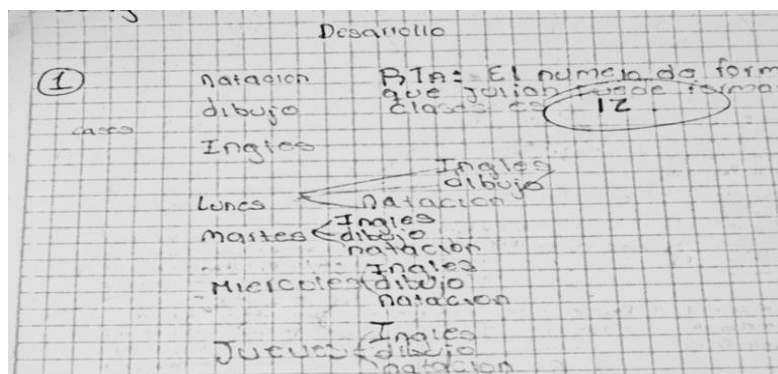 Desarrollo
1
natacion
dibujo
Ingles
RTA: El numero de form
que julian puede forma
clases es 12.
casos
Lunes
Ingles
dibujo
natacion
martes
Ingles
dibujo
natacion
Miercoles
Ingles
dibujo
natacion
Jueves
Ingles
dibujo
natacion